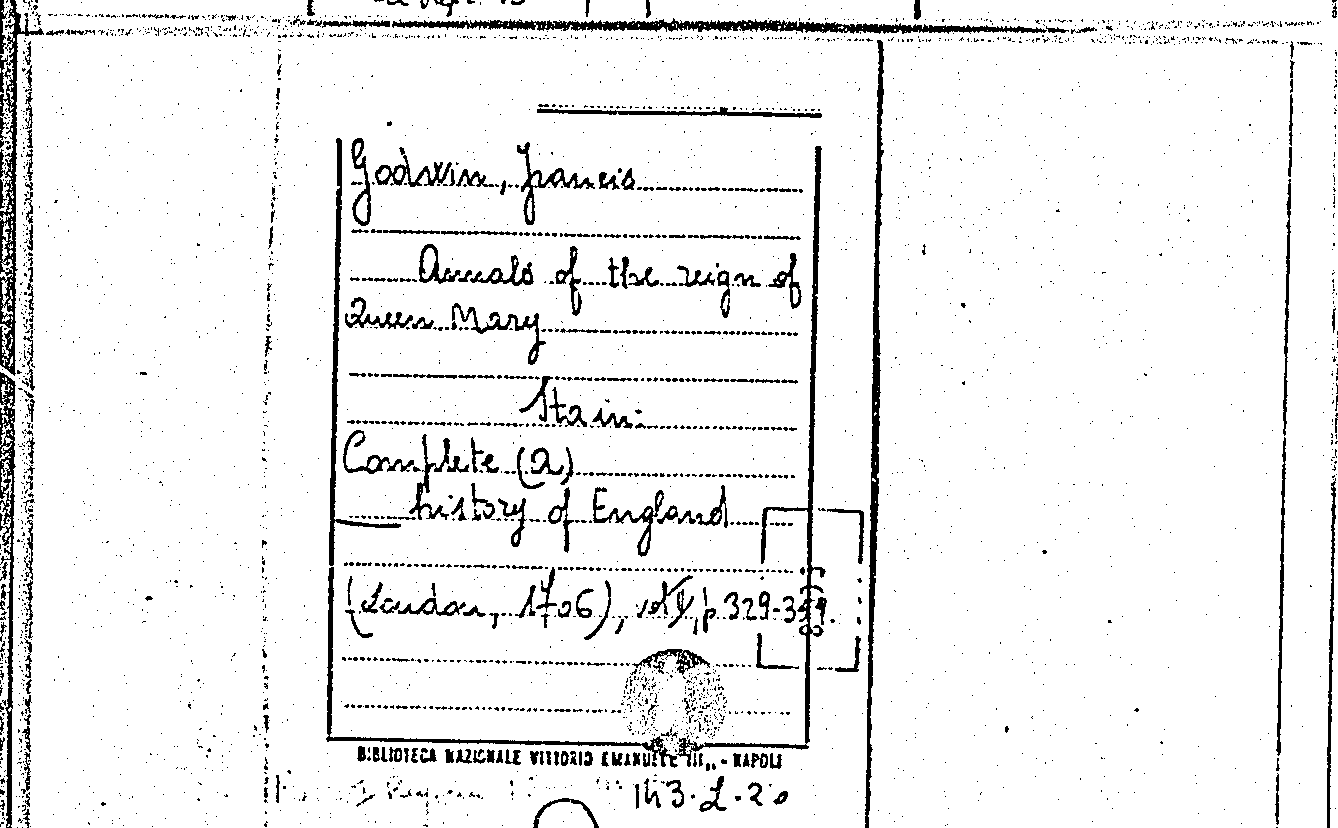 Godwin, Francis
Annals of the reign of
Queen Mary
Sta in:
Complete (a)
history of England
(London, 1706), vol p 329-
BIBLIOTECA NAZIONALE VITTORIO EMANUELE III,, - NAPOLI
143.L.20